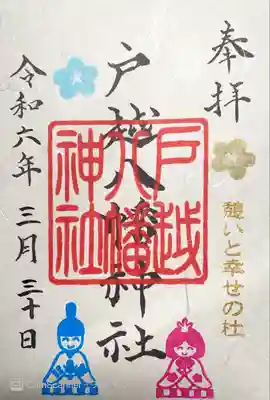 奉拝
憩いと幸せの杜
戸越八幡神社
戸越
八幡
神社
令和六年 三月 三十日